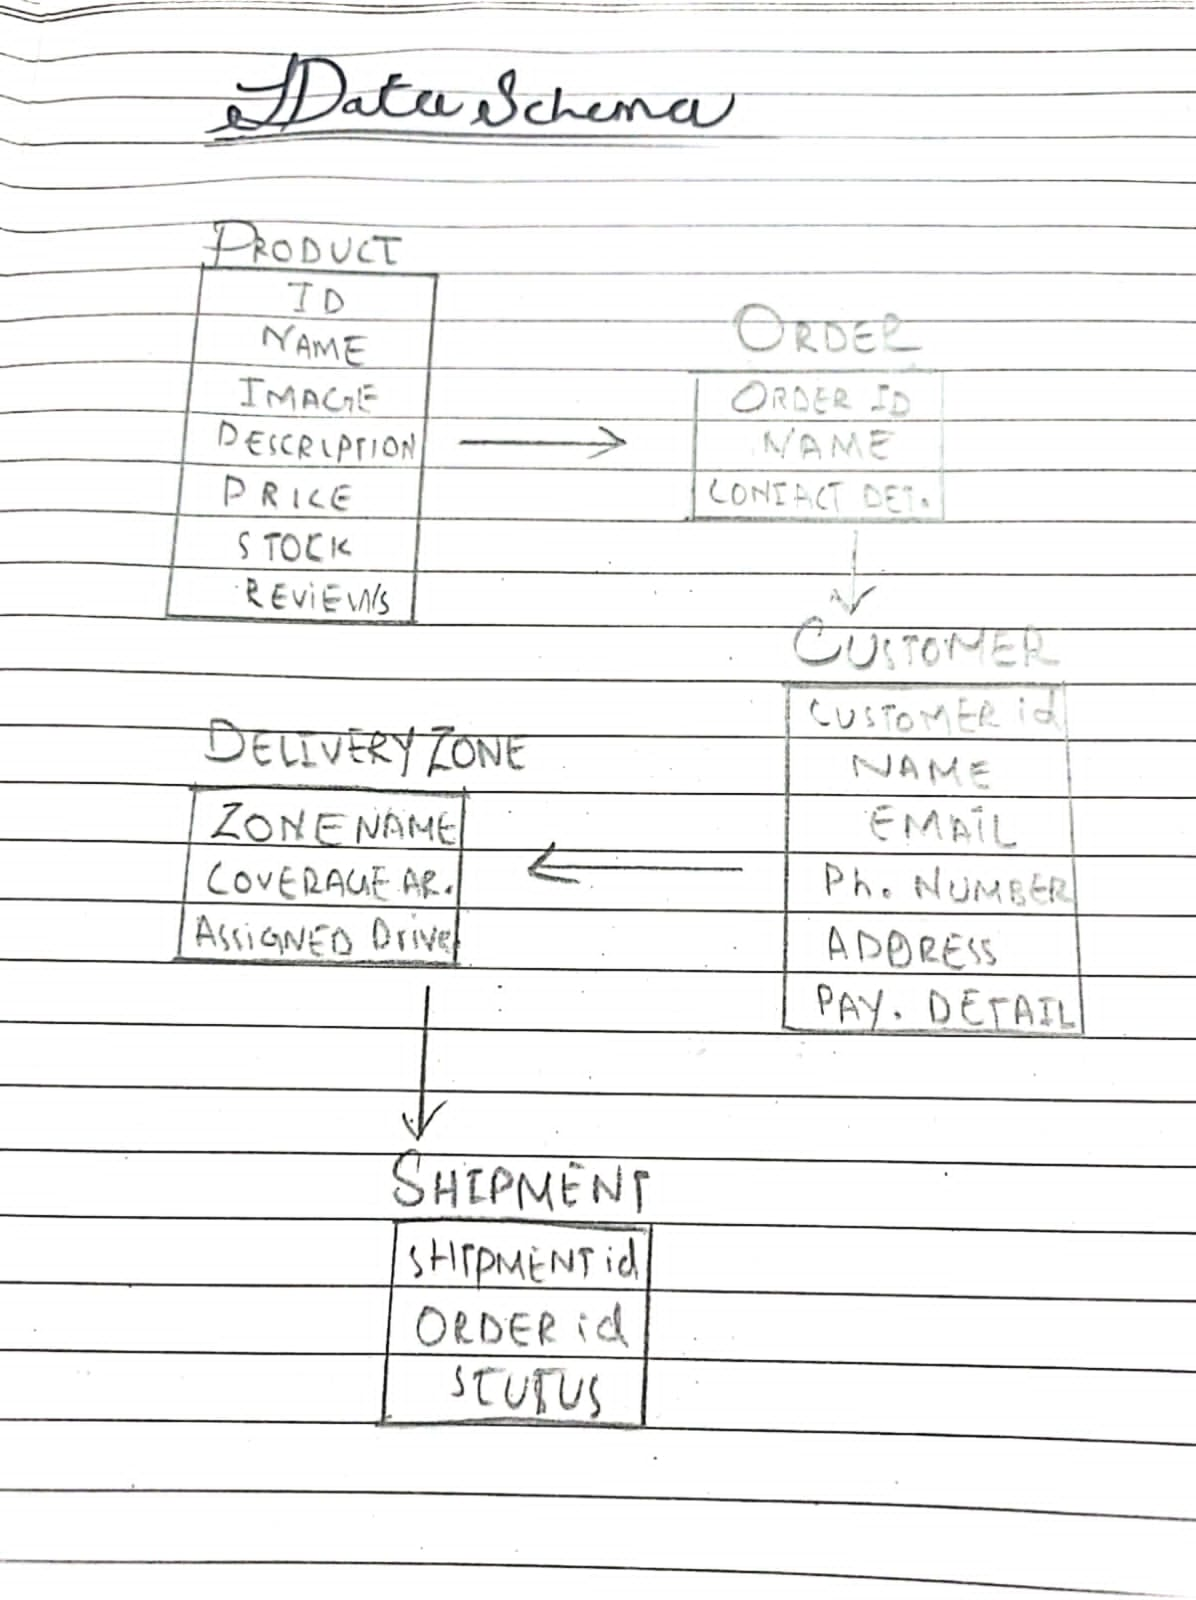 Data Schema
PRODUCT
ID
NAME
IMAGE
DESCRIPTION
PRICE
STOCK
REVIEWS
ORDER
ORDER ID
NAME
CONTACT DET.
CUSTOMER
CUSTOMER id
NAME
EMAIL
Ph. NUMBER
ADDRESS
PAY. DETAIL
DELIVERY ZONE
ZONE NAME
COVERAGE AR.
ASSIGNED Driver
SHIPMENT
SHIPMENT id
ORDER id
STUTUS